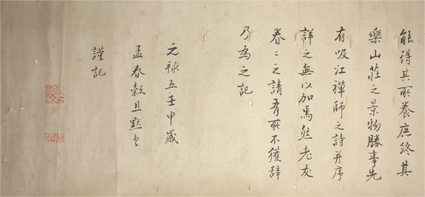 能得其所養庶終其
樂山莊之景物勝事先
有吸江禪師之詩并序
詳之無以加焉然老友
眷々之請有所不獲辞
乃為之記
元禄五壬申歲
孟春穀旦黙々
謹記